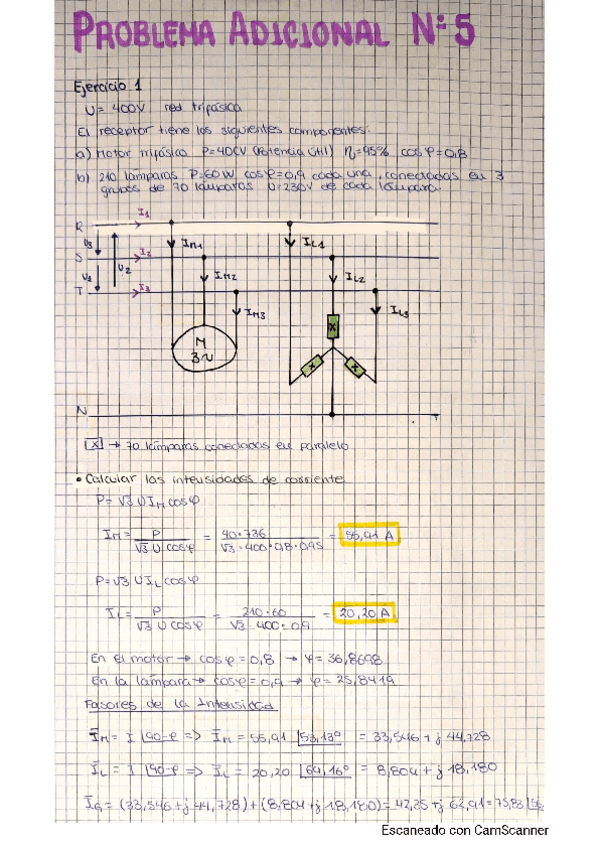 PROBLEMA ADICIONAL Nº5
Ejercicio 1
U= 400V red trifásica
El receptor tiene los siguientes componentes:
a) Motor trifásico P=40CV (Potencia útil) η=95% cosφ=0,8
b) 210 lámparas P=60W cosφ=0,9 cada una, conectadas en 3
grupos de 70 lámparas U=230V de cada lámpara.
R I1
U3 IM1 IL1
S I2
U1 U2 IM2 IL2
T I3
IM3 IL3
M
3~
X
X X
N
X → 70 lámparas conectadas en paralelo
• Calcular las intensidades de corriente
P= √3 U IM cosφ
IM= P / √3 U cosφ = 40·736 / √3·400·0,8·0,95 = 55,91 A
P=√3 U IL cosφ
IL= P / √3 U cosφ = 210·60 / √3·400·0,9 = 20,20 A
En el motor → cosφ=0,8 → φ=36,8698
En la lámpara → cosφ=0,9 → φ=25,8419
Fasores de la Intensidad
ĪM= I |90-φ => ĪM= 55,91 |53,13º = 33,546 + j 44,728
ĪL= I |90-φ => ĪL= 20,20 |64,16º = 8,804 + j 18,180
ĪG= (33,546+j 44,728)+(8,804+j 18,180)= 42,35+j 62,91= 75,83 |56
Escaneado con CamScanner